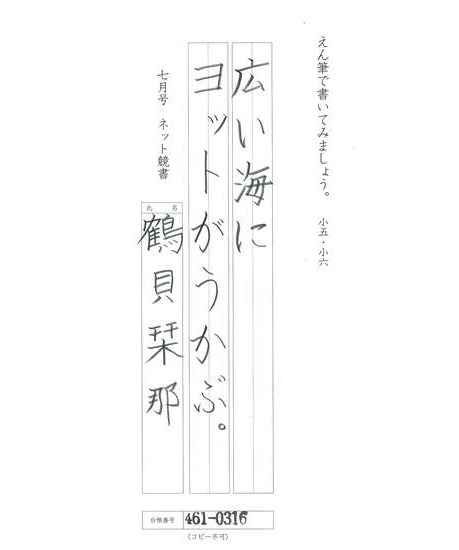 えん筆で書いてみましょう。 小五・小六
広い海に
ヨットがうかぶ。
七月号 ネット競書
氏名
鶴貝栞那
台帳番号 461-0316
〈コピー不可〉